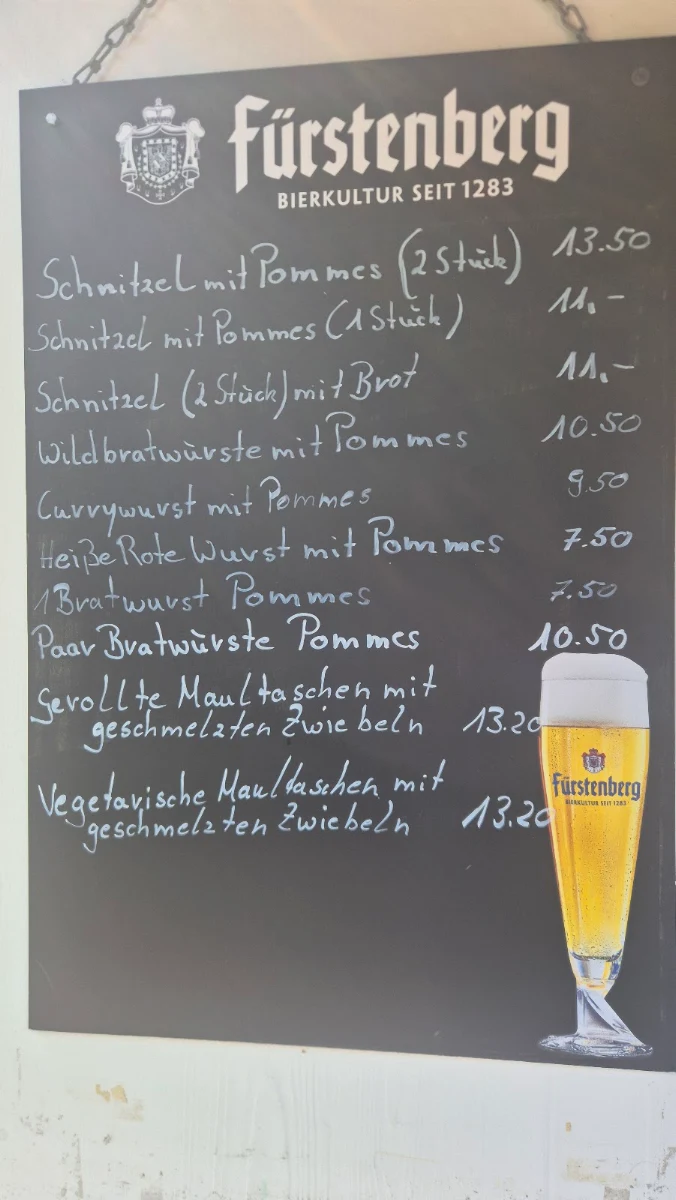 Fürstenberg
BIERKULTUR SEIT 1283
Schnitzel mit Pommes (2 Stück) 13.50
Schnitzel mit Pommes (1 Stück) 11.-
Schnitzel (2 Stück) mit Brot 11.-
Wildbratwürste mit Pommes 10.50
Currywurst mit Pommes 9.50
Heiße Rote Wurst mit Pommes 7.50
1 Bratwurst Pommes 7.50
Paar Bratwürste Pommes 10.50
Gerollte Maultaschen mit
geschmelzten Zwiebeln 13.20
Vegetarische Maultaschen mit
geschmelzten Zwiebeln 13.20
Fürstenberg
BIERKULTUR SEIT 1283